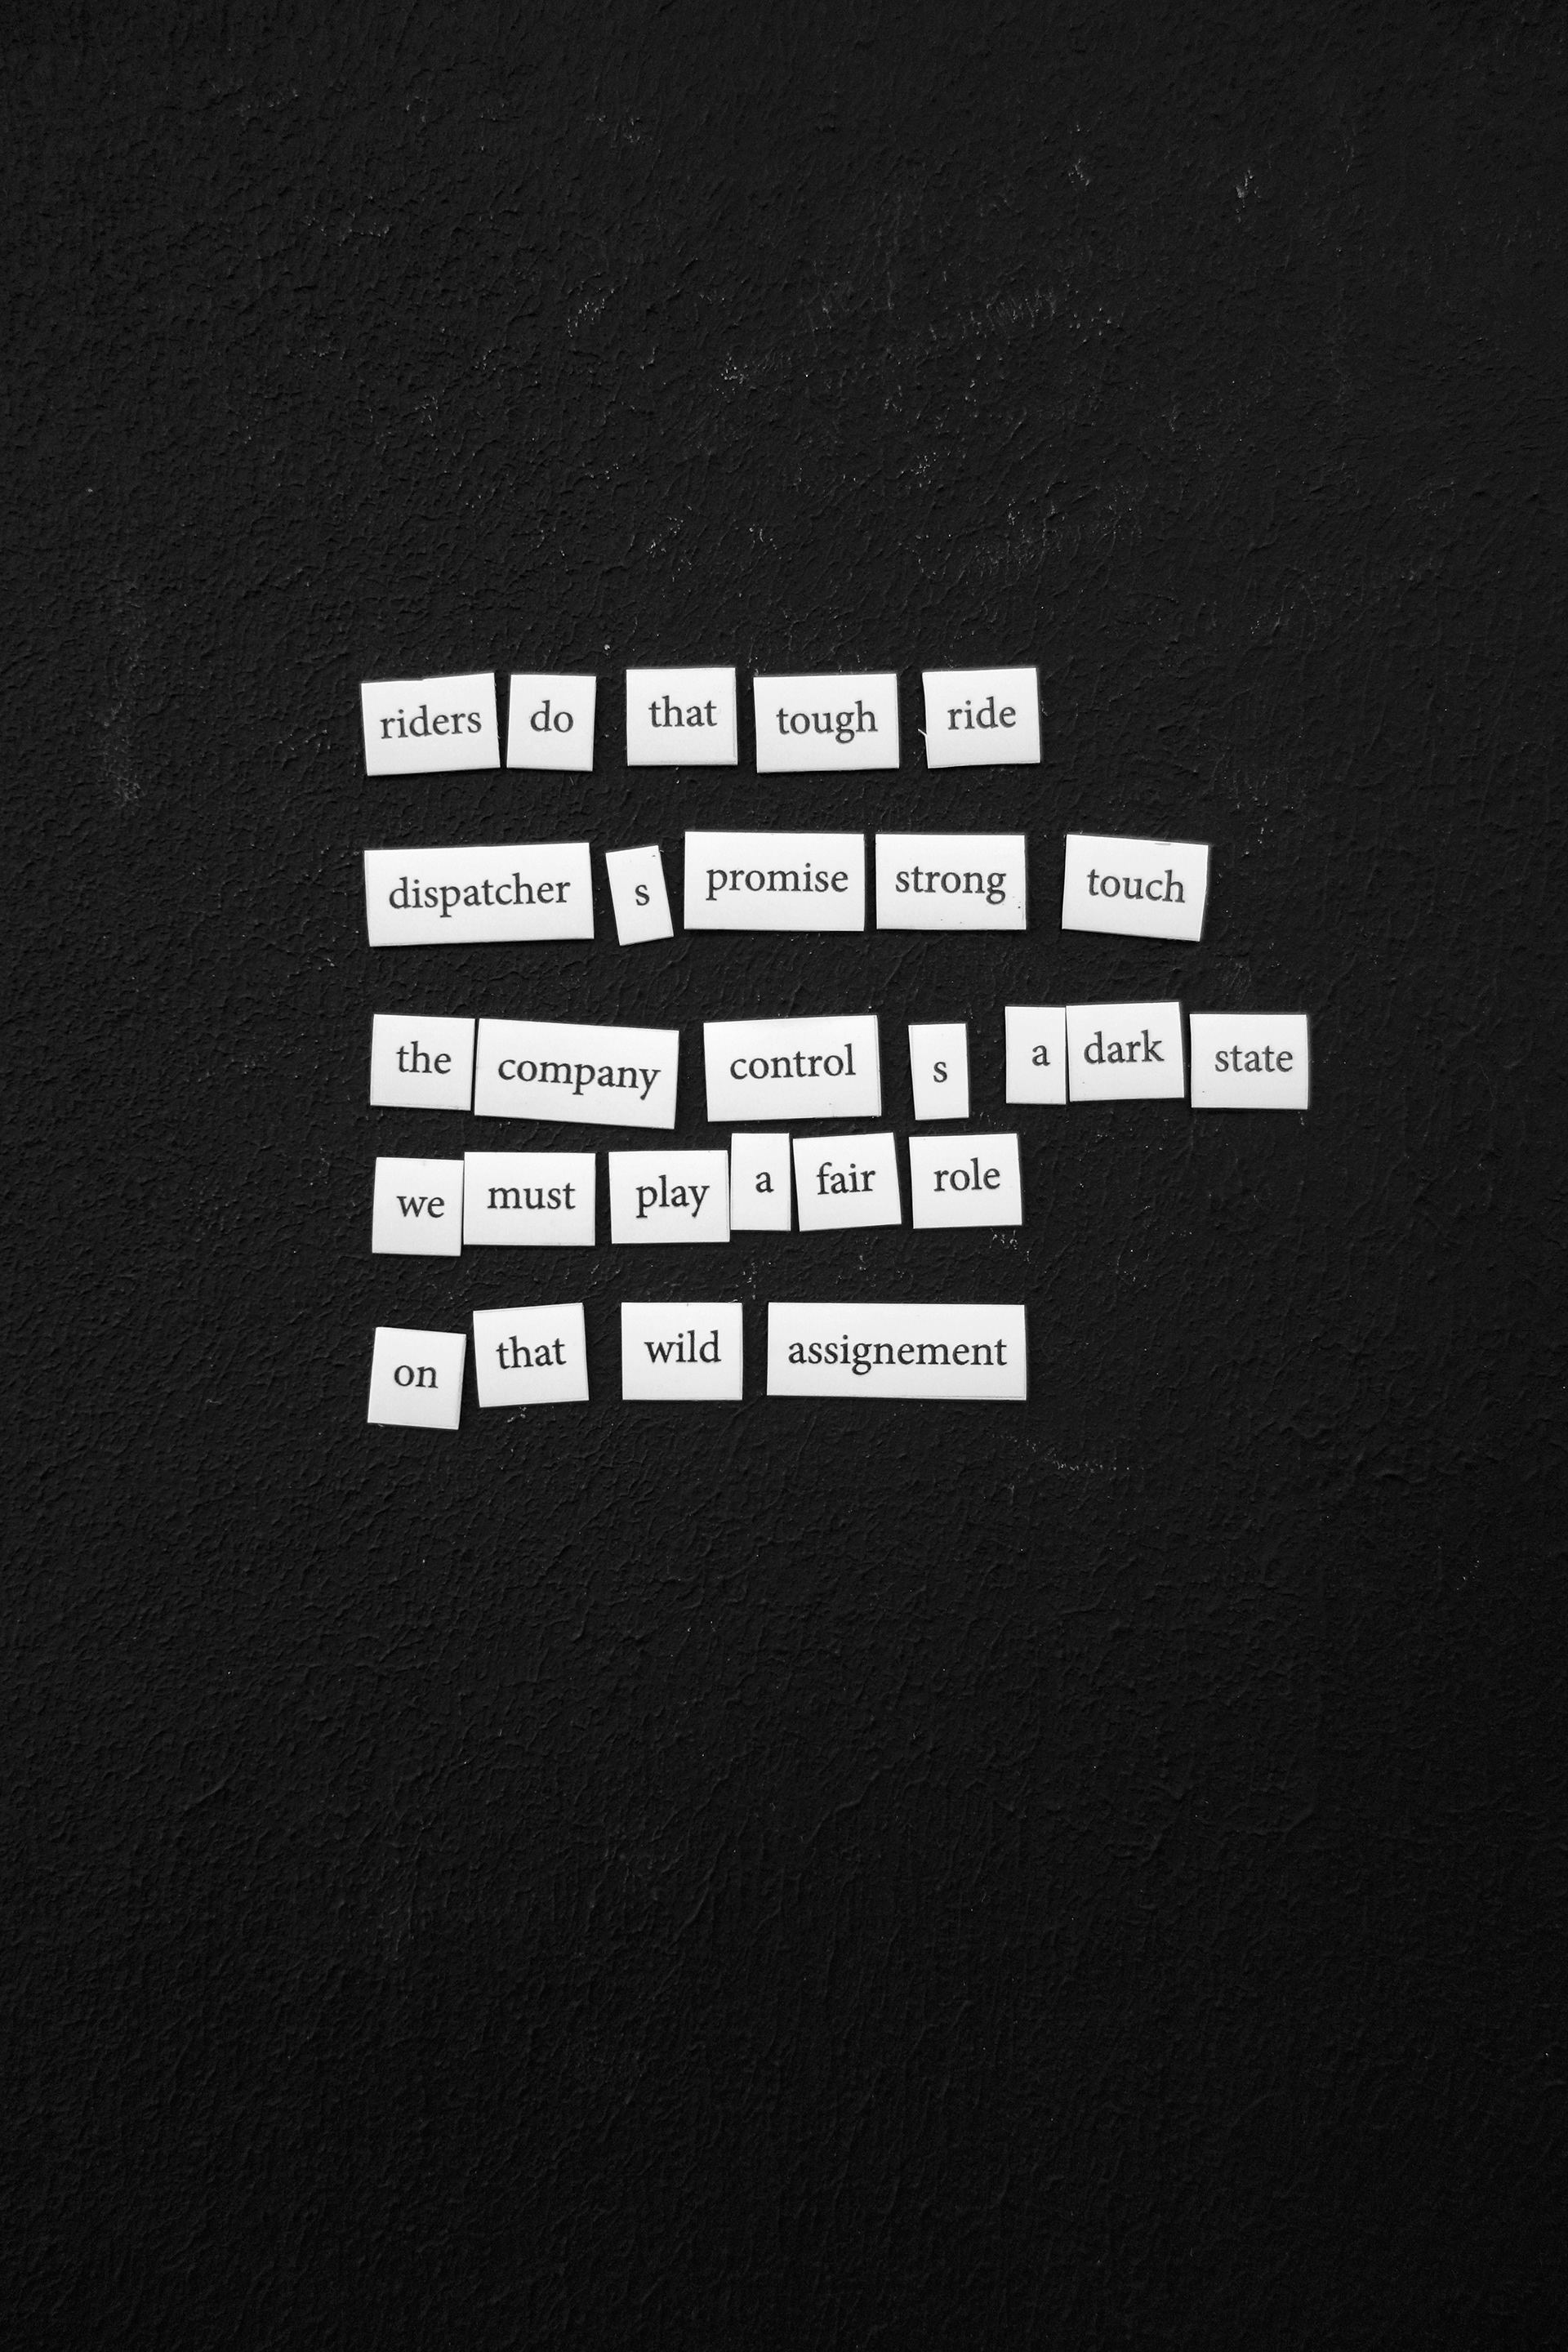 riders do that tough ride
dispatcher s promise strong touch
the company control s a dark state
we must play a fair role
on that wild assignement